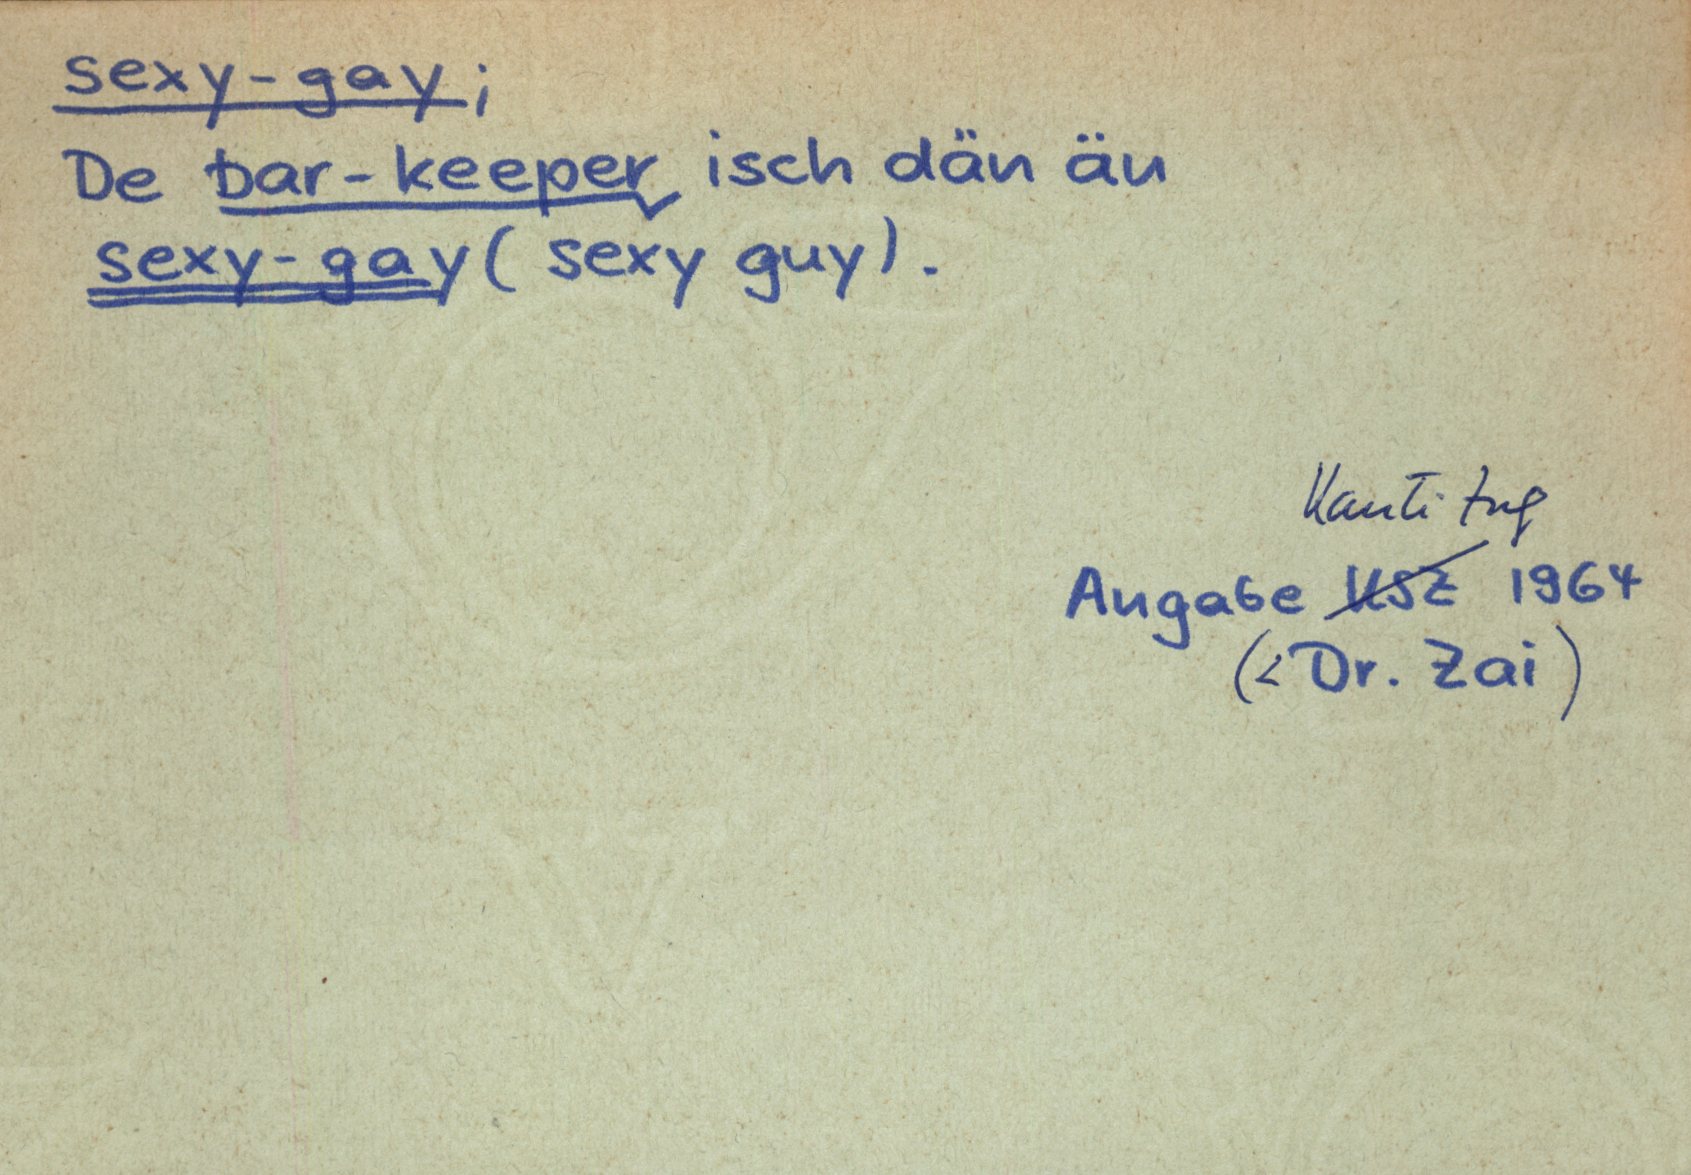 sexy-gay;
De bar-keeper isch dän än
sexy-gay ( sexy guy).
Kanti Zug
Angabe KSZ 1964
(< Dr. Zai)